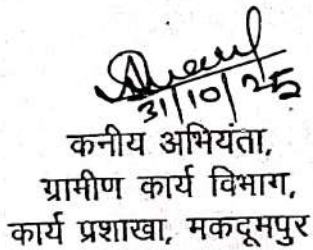 31/10/25
कनीय अभियंता,
ग्रामीण कार्य विभाग,
कार्य प्रशाखा, मकदूमपुर